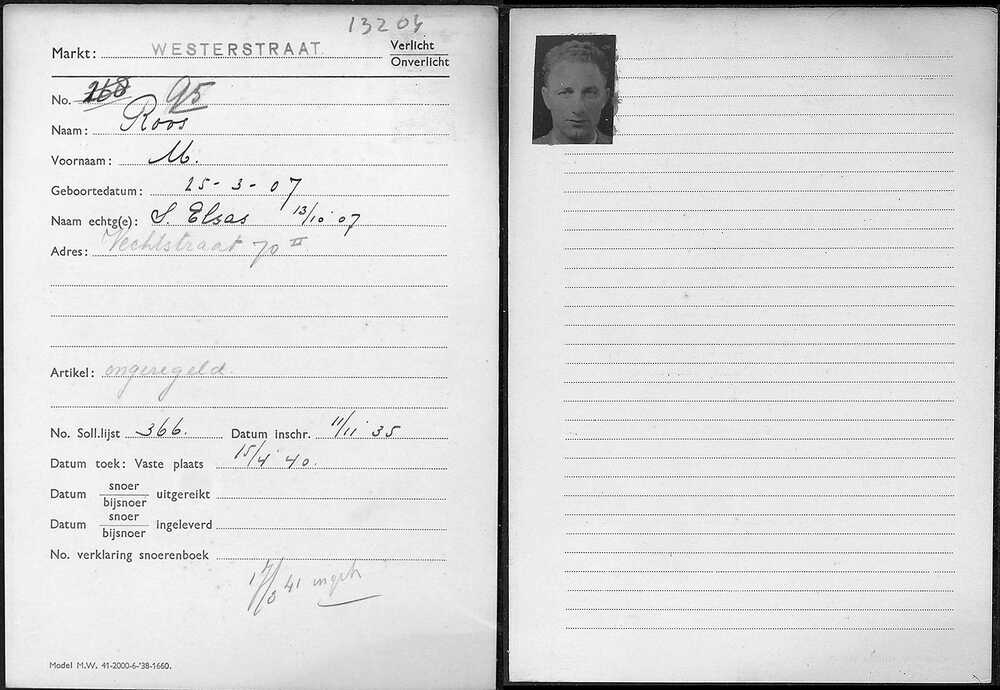 13204
Markt: WESTERSTRAAT. Verlicht
Onverlicht
No. 268 95
Naam: Roos
Voornaam: M.
Geboortedatum: 25-3-07
Naam echtg(e): S. Elsas 13/10 07
Adres: Vechtstraat 70 II
Artikel: ongeregeld.
No. Soll.lijst 366. Datum inschr. 11/11 35
Datum toek: Vaste plaats 15/4 40.
Datum snoer uitgereikt
bijsnoer
Datum snoer ingeleverd
bijsnoer
No. verklaring snoerenboek
41
Model M.W. 41-2000-6-'38-1660.